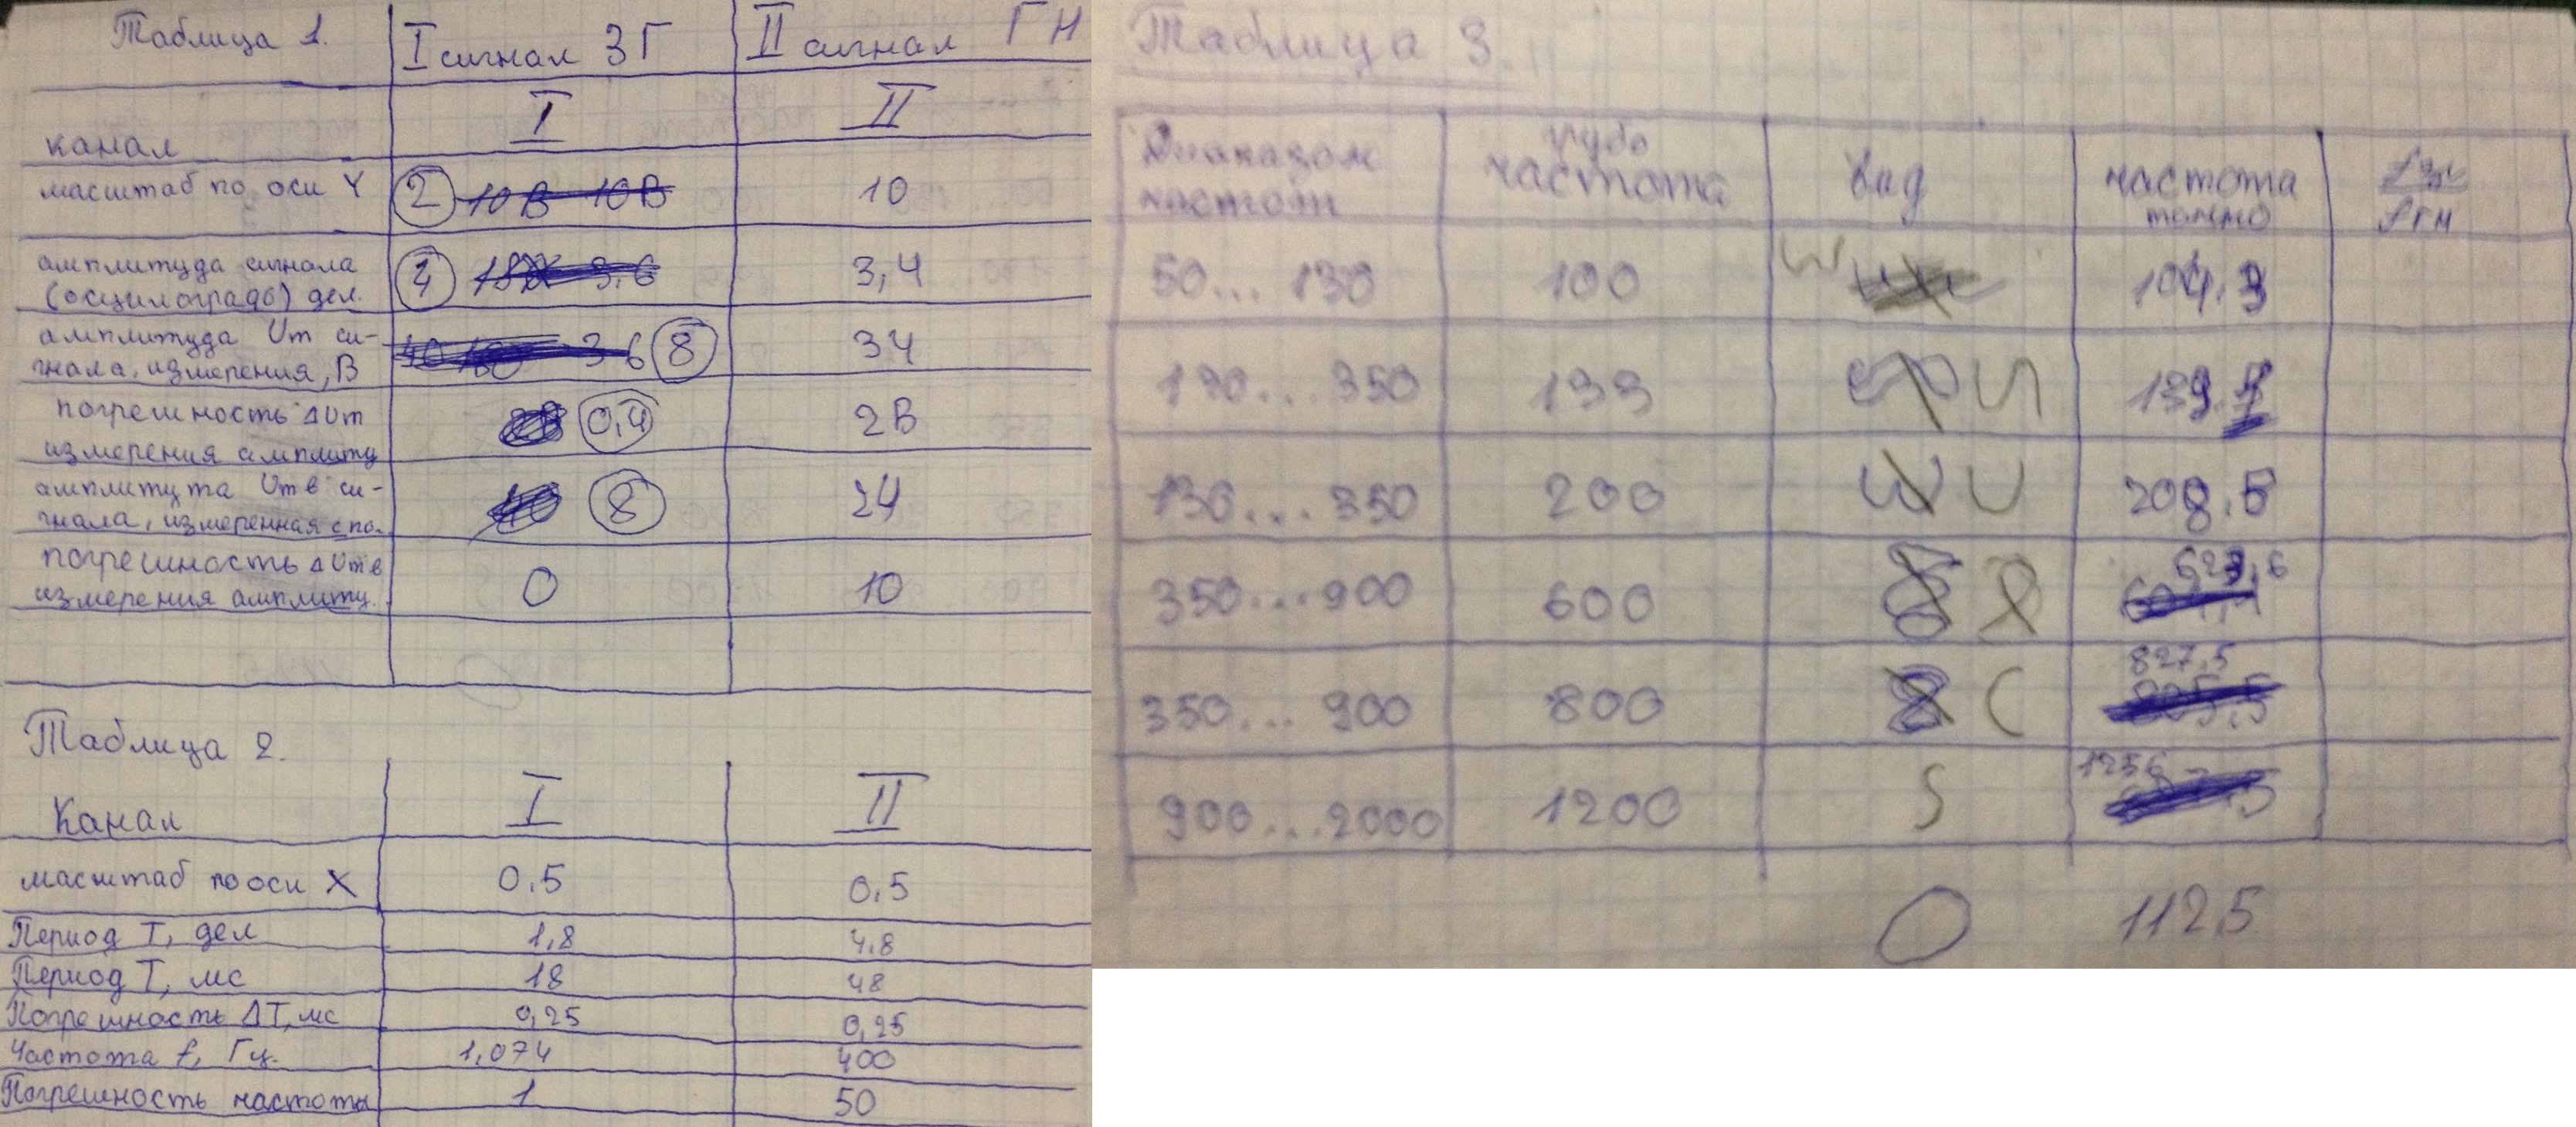 Таблица 1. I сигнал ЗГ II сигнал ГН
канал I II
масштаб по оси Y 2 10В 10В 10
амплитуда сигнала
(осцилограф) дел. 4 3,6 3,4
амплитуда Um си-
гнала, измерения, В 36 8 34
погрешность ΔUm
измерения амплиту 0,4 2В
амплитута Umв си-
гнала, измеренная с по. 8 24
погрешность ΔUmв
измерения амплиту. 0 10
Таблица 2.
Канал I II
масштаб по оси X 0.5 0,5
Период T, дел 1,8 4.8
Период T, мс 18 48
Погрешность ΔT, мс 0,25 0,25
Частота f, Гц. 1,074 400
Погрешность частоты 1 50
Таблица 3.
Диапазон
частот
грубо
частота
вид
частота
точно
fзг
fгн
50... 130 100 104.3
130...350 133 139.
130...350 200 208.5
350...900 600 623,6
350... 900 800 827,5
900...2000 1200 1256
112,5